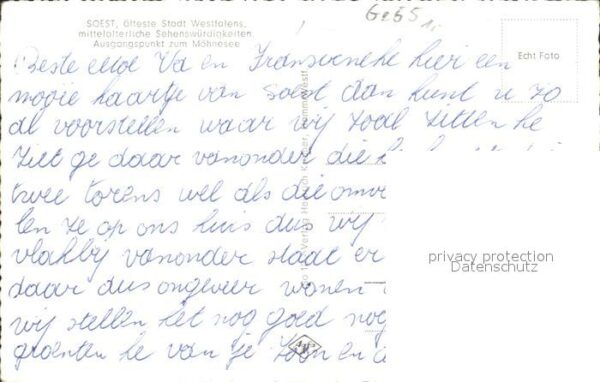 SOEST, älteste Stadt Westfalens,
mittelalterliche Sehenswürdigkeiten
Ausgangspunkt zum Möhnesee
Ge55
Echt Foto
Beste Va en hier een
mooie kaartje van Soest dan kunt u zo
al voorstellen waar wij zoal zitten he
ziet ge daar vanonder die
twee torens wel als die
len ze op ons huis dus wij
vlakbij vanonder staat er
daar dus ongeveer wonen
wij stellen het nog goed nog
groenten he van je zoon en
privacy protection
Datenschutz